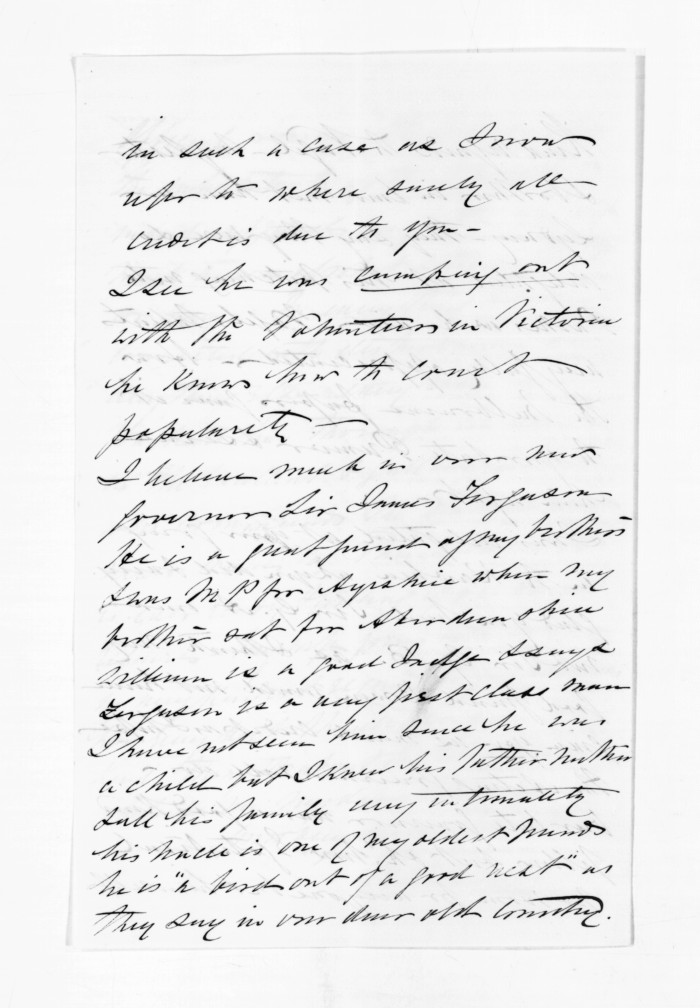 in such a case as I now
refer to where surely all
credit is due to you —
I see he was camping out
with the Volunteers in Victoria
he knows how to court
popularity —
I believe much in our new
Governor Sir James Ferguson
He is a great friend of my brothers
& was M P for Ayrshire when my
brother sat for Aberdeenshire
William is a good Judge & says
Ferguson is a very first class man
I have not seen him since he was
a child but I knew his father mother
& all his family very intimately
his uncle is one of my oldest friends
he is "a bird out of a good nest" as
they say in our dear old Country.